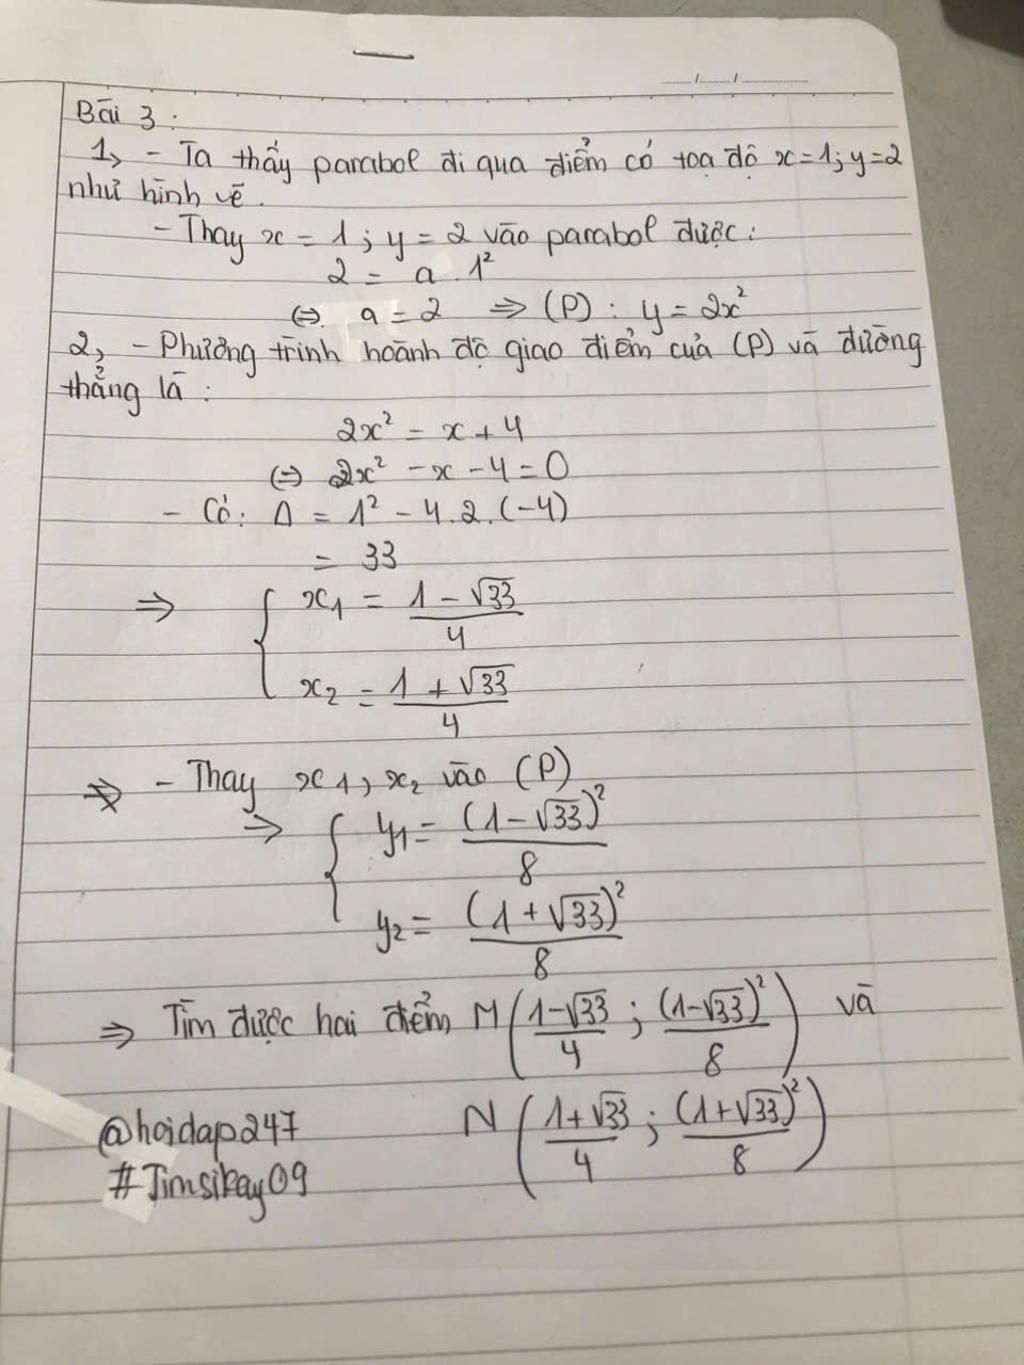 Bài 3 :
1, - Ta thấy parabol đi qua điểm có toạ độ x=1; y=2
như hình vẽ.
- Thay x = 1 ; y = 2 vào parabol được:
2 = a . 1²
(=) a = 2 => (P) : y = 2x²
2, - Phương trình hoành độ giao điểm của (P) và đường
thẳng là :
2x² = x + 4
(=) 2x² - x - 4 = 0
- Có: Δ = 1² - 4.2.(-4)
= 33
=> { x₁ = (1 - √33)/4
x₂ = (1 + √33)/4
- Thay x₁, x₂ vào (P)
=> { y₁ = (1-√33)²/8
y₂ = (1+√33)²/8
=> Tìm được hai điểm M((1-√33)/4 ; (1-√33)²/8) và
N((1+√33)/4 ; (1+√33)²/8)
@hoidap247
#Timsikay09